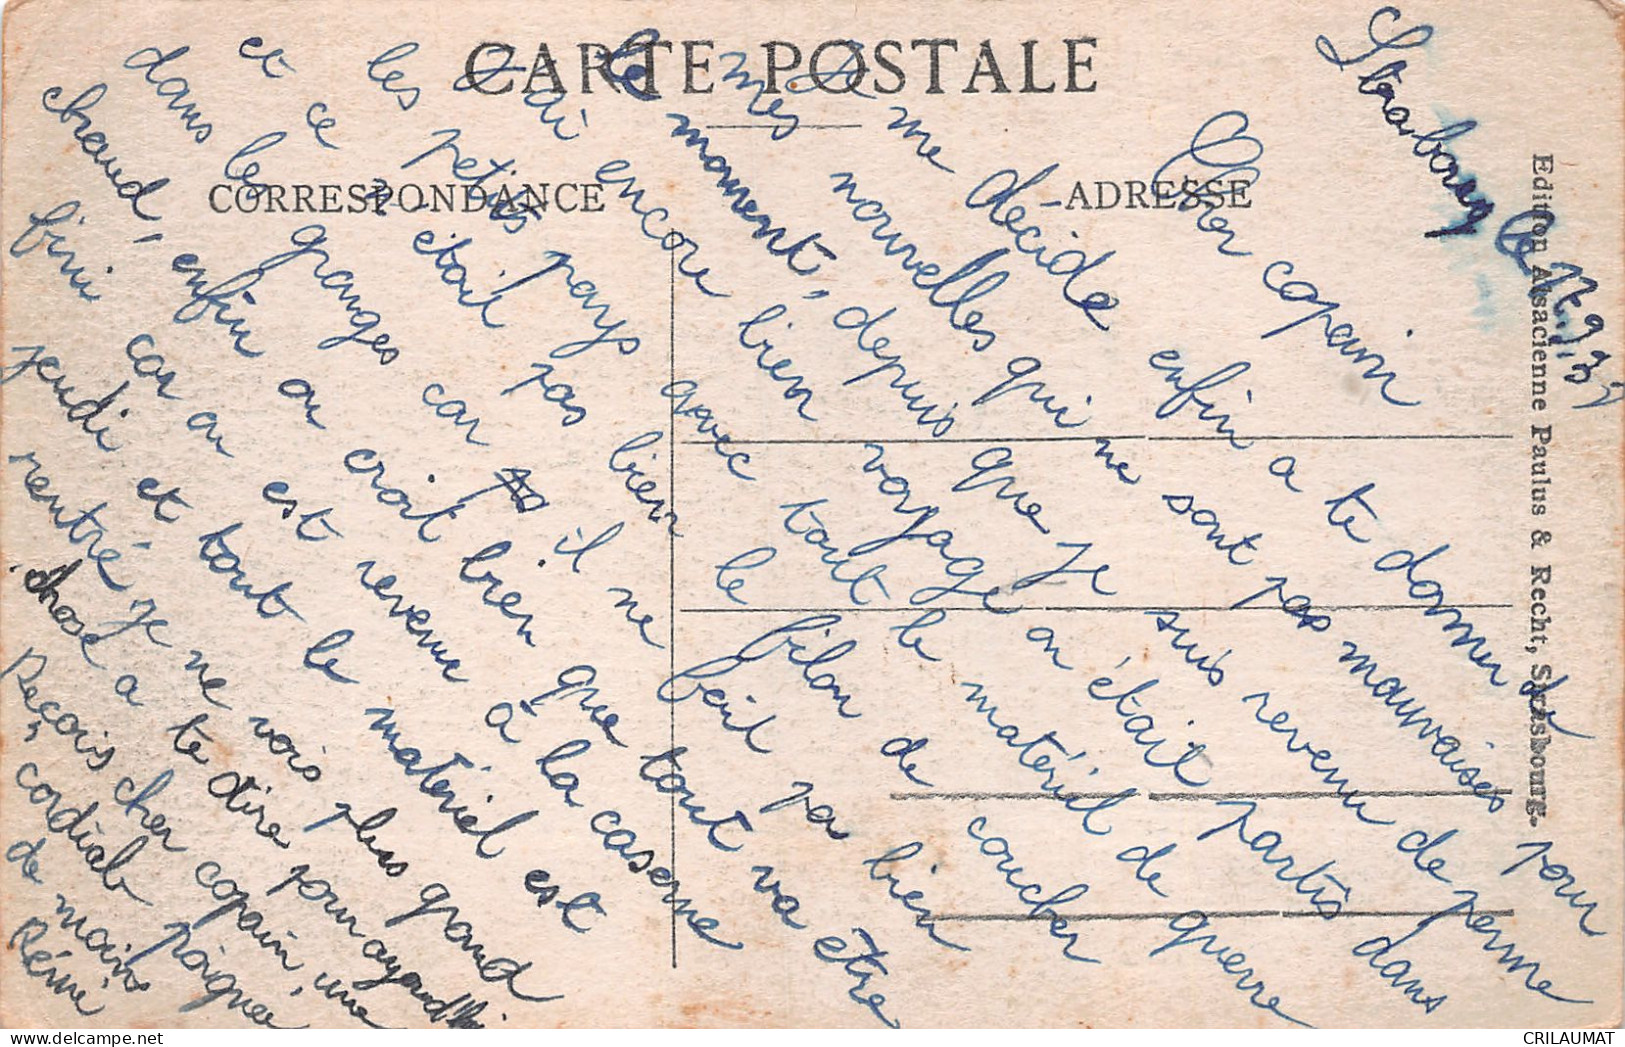 CARTE POSTALE
CORRESPONDANCE
ADRESSE
Edition Alsacienne Paulus & Recht, Strasbourg.
Strasbourg le
Cher copain
Je me décide enfin a te donner de
mes nouvelles qui ne sont pas mauvaises pour
le moment, depuis que je suis revenu de perme
J'ai encore bien voyagé on était partis dans
les petits pays avec tout le matériel de guerre
et ce n'était pas bien le filon de coucher
dans les granges car il ne fait pa bien
chaud, enfin on croit bien que tout va être
fini car on est revenu à la caserne
jeudi et tout le matériel est
rentré je ne vois plus grand
chose a te dire pour aujourd'hui
Reçois cher copain une
cordiale poignée
de mains
Rémi
CRILAUMAT